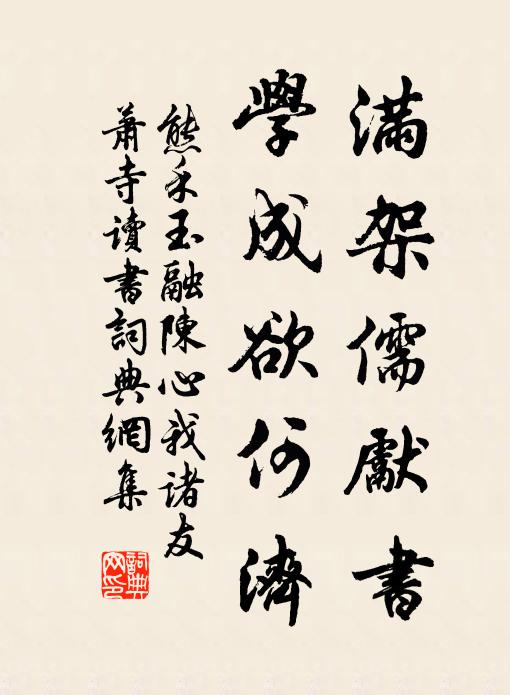 滿架儒獻書
學成欲何濟
熊禾玉融陳心我諸友
蕭寺讀書詞典網集
詞典網印